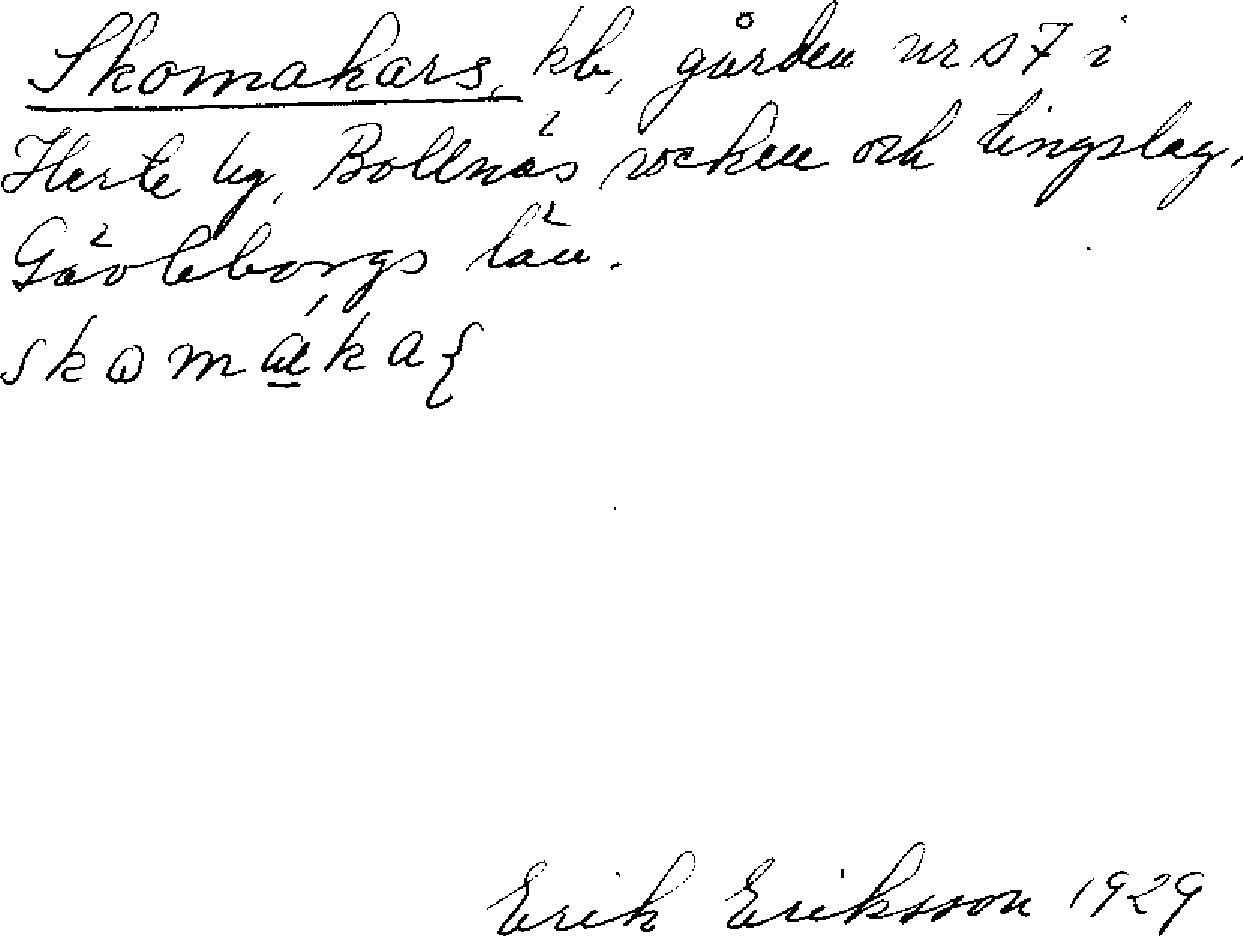 Skomakars, kb, gården nr 17 i
Herte by, Bollnäs socken och tingslag,
Gävleborgs län.
Erik Eriksson 1929